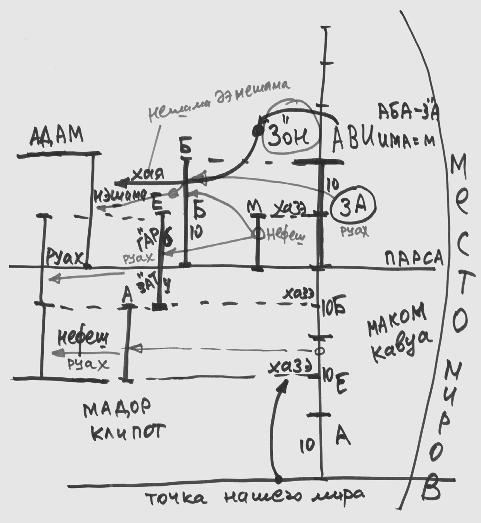 нешама дэнешама
АДАМ
ЗОН
АВИ
АБА-ЗА
ИМА=М
Б
хая
нэшама
Е
Б
10
М
хазэ
10
ЗА
руах
нефеш
ГАР
6
руах
руах
ПАРСА
ЗАТ
У
А
хазэ
10 Б
МАКОМ
кавуа
нефеш
руах
хазэ
10
Е
МАДОР
КЛИПОТ
10
А
точка нашего мира
МЕСТО МИРОВ